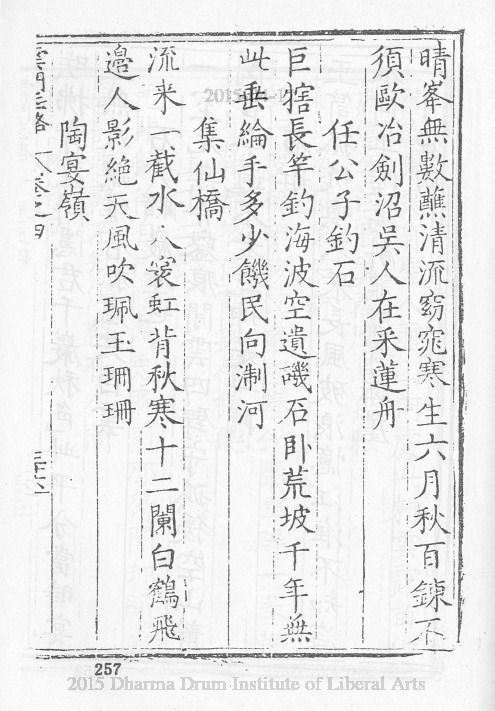 晴峯無數蘸清流窈窕寒生六月秋百鍊不
須歐冶劍沼吳人在采蓮舟
任公子釣石
巨犗長竿釣海波空遺磯石卧荒坡千年無
此垂綸手多少饑民向淛河
集仙橋
流来一截水
虹背秋寒十二闌白鶴飛
邉人影絶天風吹珮玉珊珊
陶宴嶺
卷之四
257
2015 Dharma Drum Institute of Liberal Arts